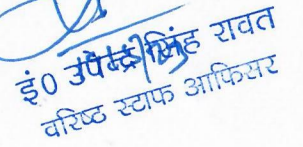 इं० उपेन्द्र सिंह रावत
वरिष्ठ स्टाफ आफिसर